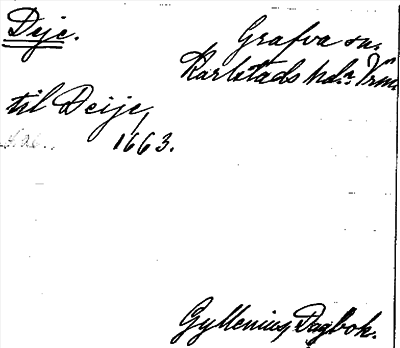 Deje.
Grafva sn.
Karlstads hd. Vrm.
til Deije,
1663.
Gyllenius Dagbok.